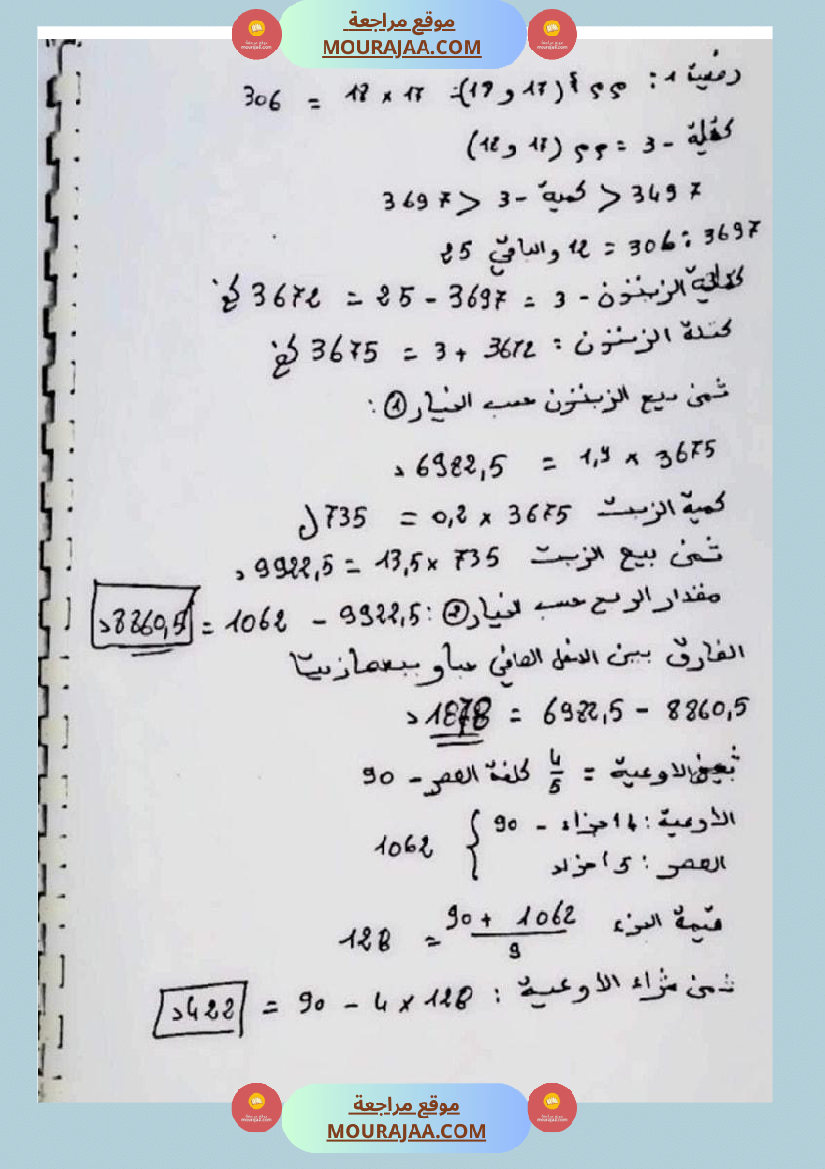 موقع مراجعة
MOURAJAA.COM
وضعية 1: م م أ (17 و 18) = 17 × 18 = 306
كتلة - 3 = م م (17 و 18)
3497 < كمية - 3 < 3697
3697 : 306 = 12 والباقي 25
كتلة الزيتون - 3 = 3697 - 25 = 3672 كغ
كتلة الزيتون : 3672 + 3 = 3675 كغ
ثمن بيع الزيتون حسب الخيار 1 :
3675 × 1,9 = 6982,5 د
كمية الزيت 3675 × 0,2 = 735 ل
ثمن بيع الزيت 735 × 13,5 = 9922,5 د
مقدار الربح حسب الخيار 2 : 9922,5 - 1062 = 8860,5 د
الفارق بين الدخل الصافي حبا و بيعها زيتا
8860,5 - 6982,5 = 1878 د
ثمن الأوعية = 4/5 كلفة العصر - 90
الأوعية : 4 أجزاء - 90
العصر : 5 أجزاء } 1062
قيمة الجزء 1062 + 90 / 9 = 128
ثمن شراء الأوعية : 128 × 4 - 90 = 422 د
موقع مراجعة
MOURAJAA.COM